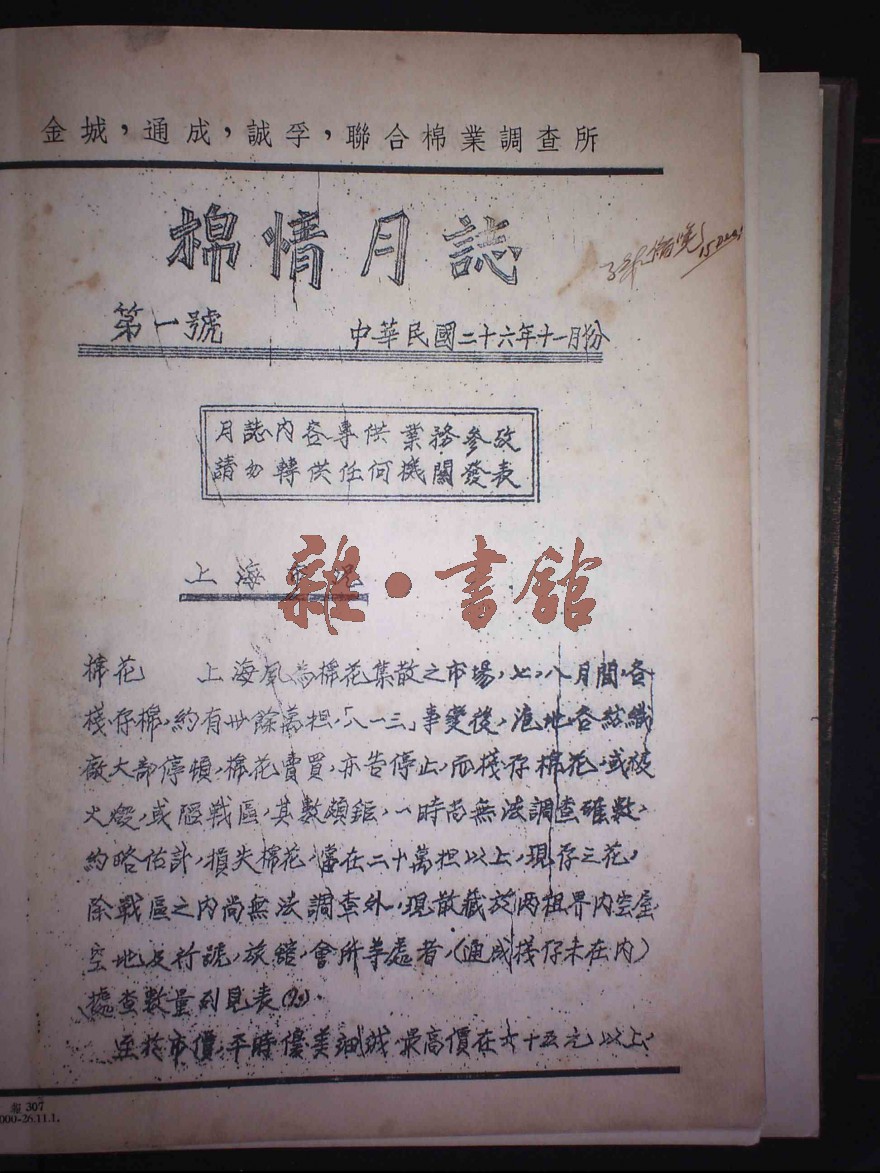 金城,通成,誠孚,聯合棉業調查所
棉情月誌
第一號 中華民國二十六年十一月份
月誌內容專供業務參攷
請勿轉供任何機關發表
上海
雜·書舘
棉花 上海夙為棉花集散之市場,七,八月間,各
棧存棉,約有卅餘萬担,「八一三」事變後,滬地各紡織
廠大部停頓,棉花賣買,亦告停止,而棧存棉花,或被
火燬,或陷戰區,其數頗鉅,一時尚無法調查確數,
約略估計,損失棉花,當在二十萬担以上,現存之花,
除戰區之內尚無法調查外,現散藏於兩租界內空屋
空地及行號,旅舘,會所等處者,(通成棧存未在內)
據查數量列見表
至於市價,平時優美細絨,最高價在六十五元以上,
報 307
000-26.11.1.